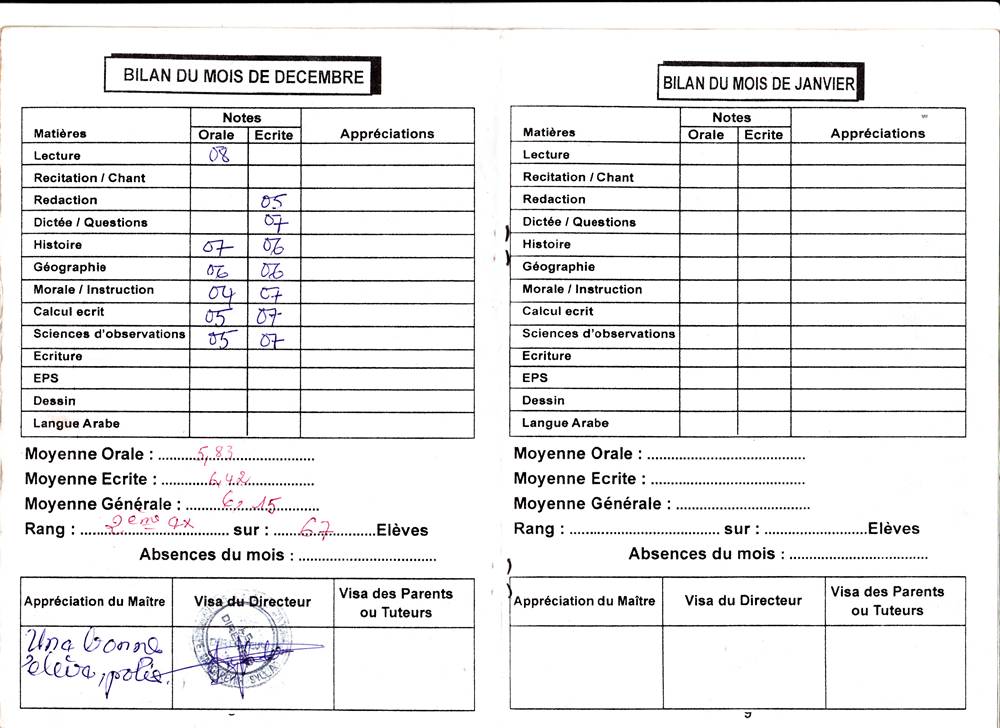 BILAN DU MOIS DE DECEMBRE
Matières Notes Appréciations
Orale Ecrite
Lecture 08
Recitation / Chant
Redaction 05
Dictée / Questions 07
Histoire 07 06
Géographie 06 06
Morale / Instruction 04 07
Calcul ecrit 05 07
Sciences d'observations 05 07
Ecriture
EPS
Dessin
Langue Arabe
Moyenne Orale : 5,83
Moyenne Ecrite : 6,42
Moyenne Générale : 6,15
Rang : 2ème ex sur : 67 Elèves
Absences du mois :
Appréciation du Maître Visa du Directeur Visa des Parents ou Tuteurs
Une bonne
élève, polie.
BILAN DU MOIS DE JANVIER
Matières Notes Appréciations
Orale Ecrite
Lecture
Recitation / Chant
Redaction
Dictée / Questions
Histoire
Géographie
Morale / Instruction
Calcul ecrit
Sciences d'observations
Ecriture
EPS
Dessin
Langue Arabe
Moyenne Orale :
Moyenne Ecrite :
Moyenne Générale :
Rang : sur : Elèves
Absences du mois :
Appréciation du Maître Visa du Directeur Visa des Parents ou Tuteurs